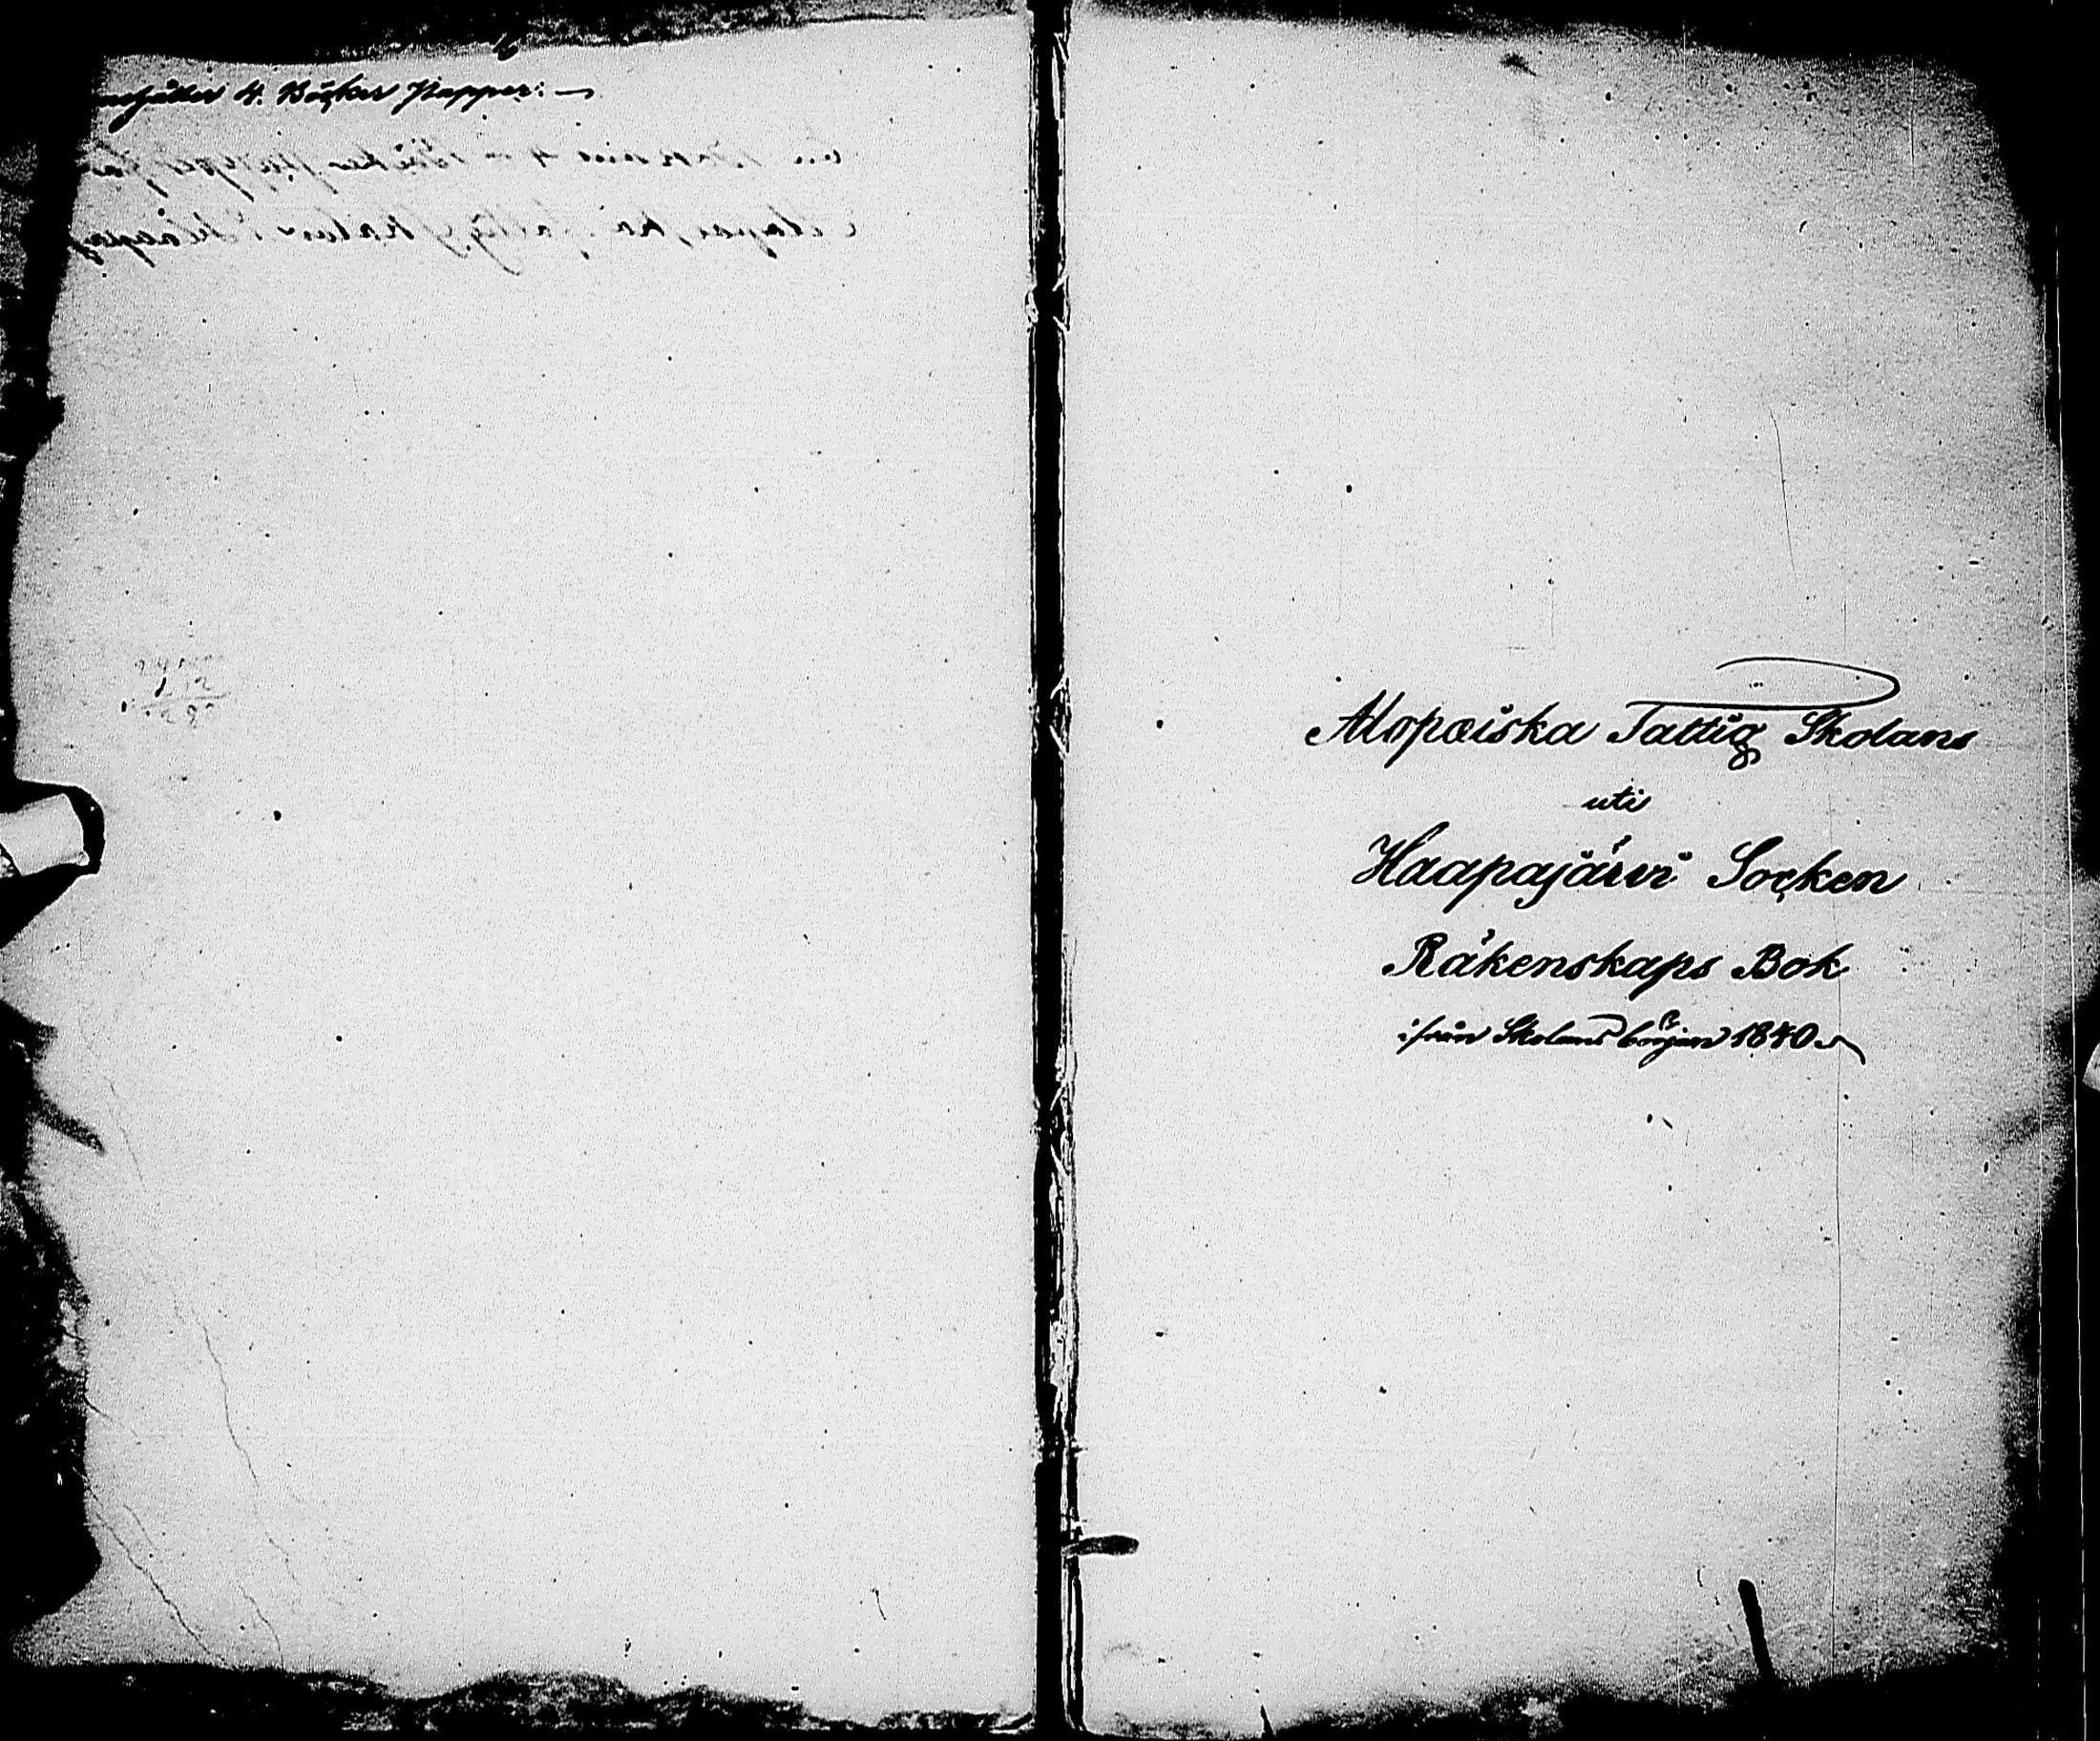 4. Böcker Papper: —
Alopæiska Fattig Skolans
uti
Haapajärvi Socken
Räkenskaps Bok
ifrån Skolans början 1840